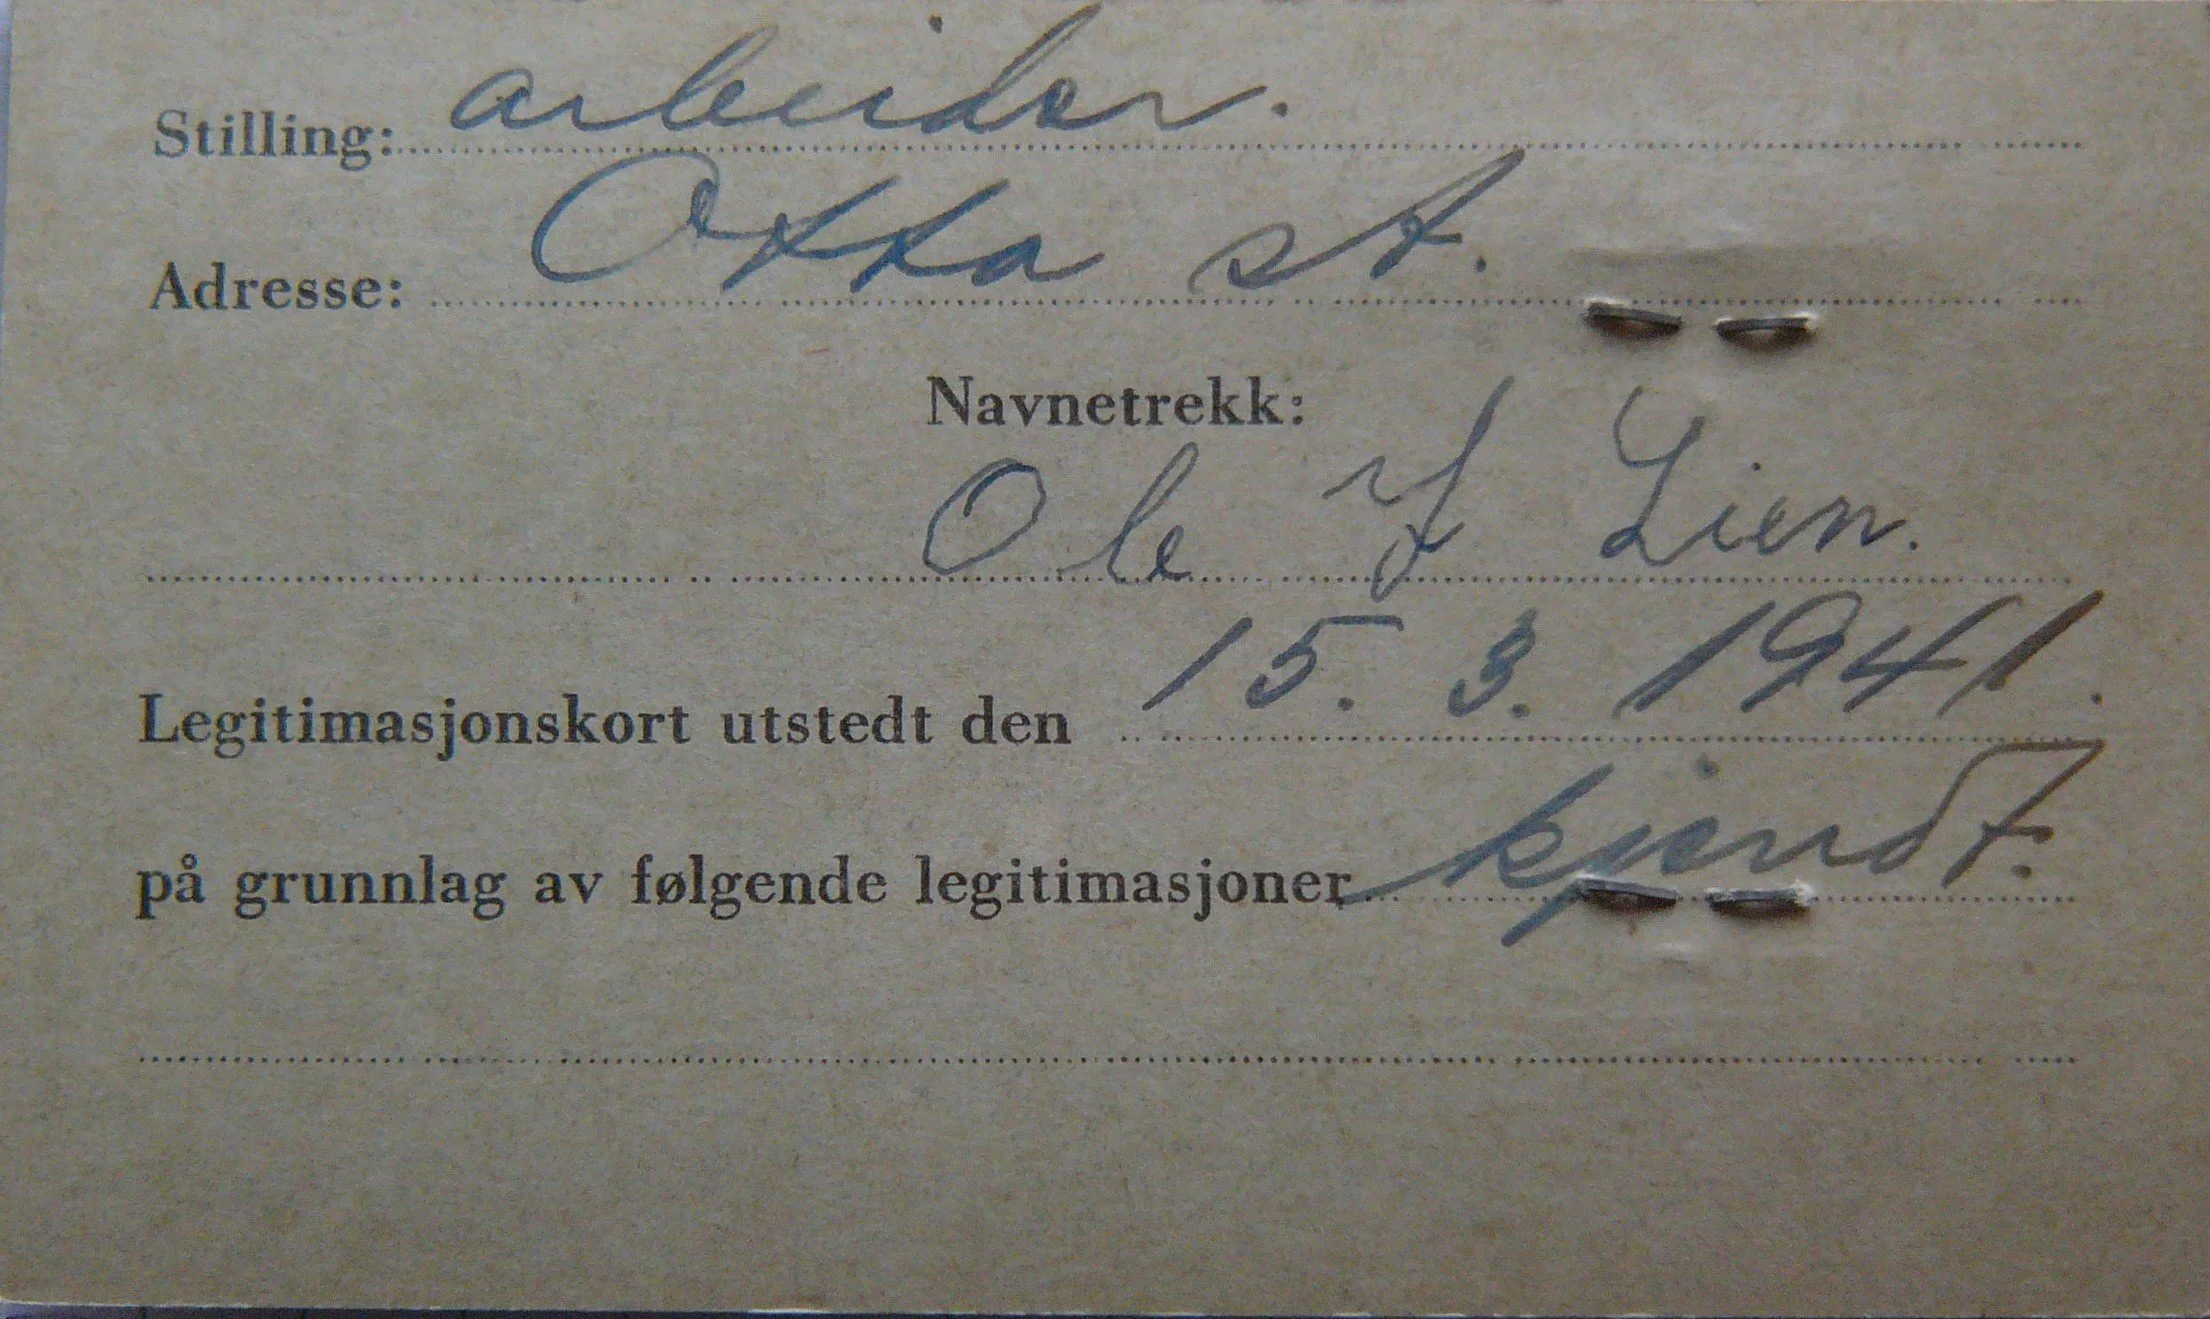 Stilling: arbeider.
Adresse: Otta st.
Navnetrekk:
Ole J Lien.
Legitimasjonskort utstedt den 15. 3. 1941.
på grunnlag av følgende legitimasjoner kjendt.